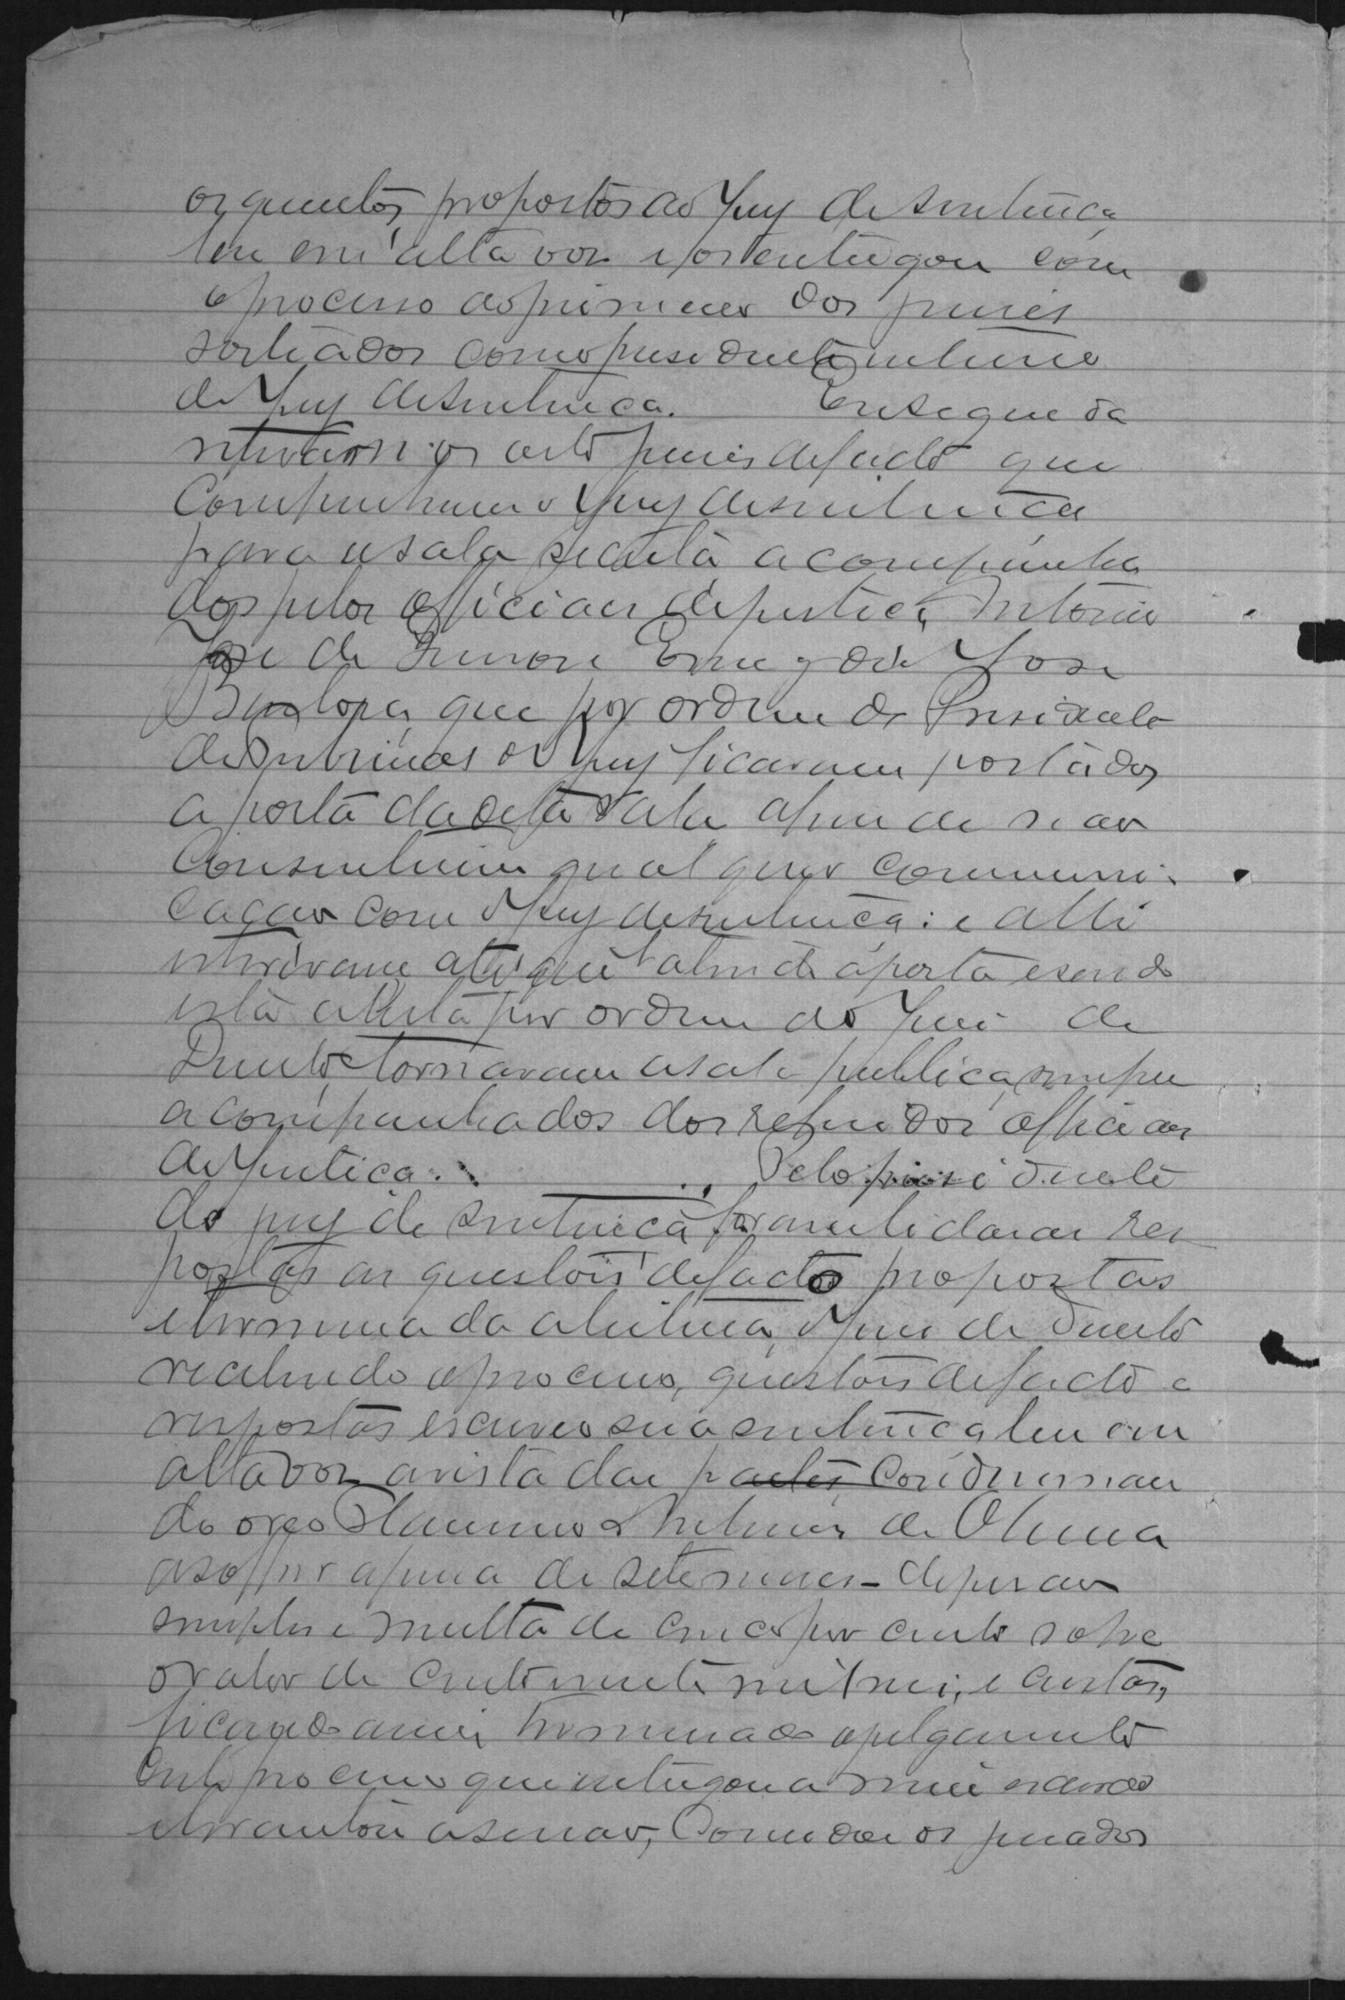 os quesitos propostos ao Jury de sentença
leu em alta voz e os entregou com
o processo ao primeiro dos juises
sorteados como presidente interino
do Jury de sentença. Em seguida
retiraram-se os oito juises de facto que
compunham o Jury de sentença
para a sala secreta acompanha
dos pelos officiaes de justiça Antonio
Jose de e Emygdio Jose
que por ordem do Presidente
do Tribunal do Jury ficaram postados
a porta da dita sala afim de não
consentirem qualquer communi-
cação com o Jury de sentença: e alli
estiveram até que bateu á porta e sendo
esta aberta por ordem do Juis de
Direito tornaram a sala publica, sempre
acompanhados dos referidos officiaes
de Justiça. Pelo presidente
do jury de sentença foram lidas as res
postas as questões de facto propostas
e terminada a leitura, o Juis de Direito
recebendo o processo, questões de facto e
respostas escreveo sua sentença leu em
alta voz a vista das partes condemnan
do o reo de Oliveira
a soffrer a pena de sete meses de prisão
simples e multa de cinco por cento sobre
o valor de cento e vinte mil reis, e custas,
ficando assim terminado o julgamento
deste processo que entregou a mim escrivão
e levantou a sessão, convidou os jurados